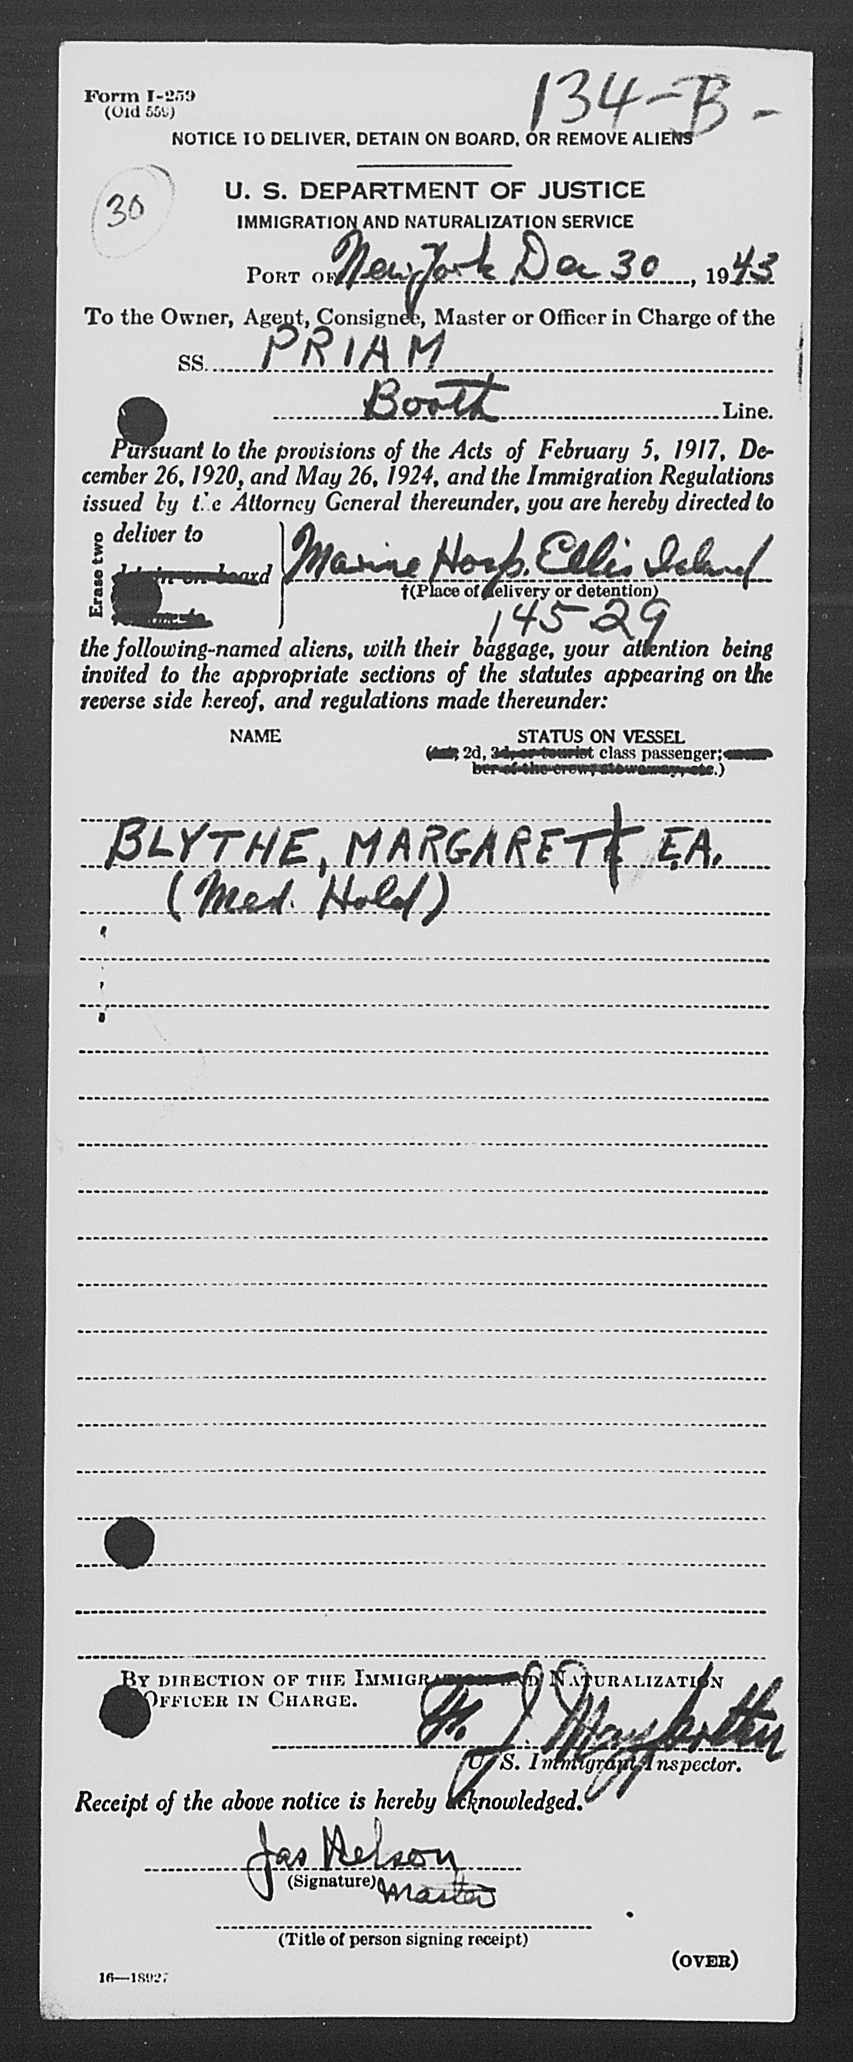 Form I-259
(Old 559)
134-B-
NOTICE TO DELIVER, DETAIN ON BOARD, OR REMOVE ALIENS
30
U. S. DEPARTMENT OF JUSTICE
IMMIGRATION AND NATURALIZATION SERVICE
PORT OF New York Dec 30, 1943
To the Owner, Agent, Consignee, Master or Officer in Charge of the
SS. PRIAM
Booth Line.
Pursuant to the provisions of the Acts of February 5, 1917, De-
cember 26, 1920, and May 26, 1924, and the Immigration Regulations
issued by the Attorney General thereunder, you are hereby directed to
Erase two
deliver to
detain on board
Marine Hosp. Ellis Island
†(Place of delivery or detention)
14529
the following-named aliens, with their baggage, your attention being
invited to the appropriate sections of the statutes appearing on the
reverse side hereof, and regulations made thereunder:
NAME STATUS ON VESSEL
2d, 3d, or tourist class passenger;
ber of the crew, stowaway, etc.)
BLYTHE, MARGARET E.A.
(Med. Hold)
BY DIRECTION OF THE IMMIGRATION AND NATURALIZATION
OFFICER IN CHARGE.
U. S. Immigrant Inspector.
Receipt of the above notice is hereby acknowledged.
Jas Nelson
(Signature)
Master
(Title of person signing receipt)
(OVER)
16—18927